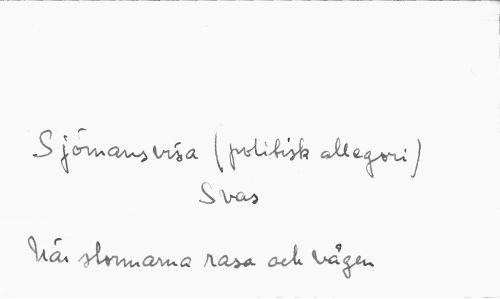 Sjömansvisa (politisk allegori)
Svas
När stormarna rasa och vågen